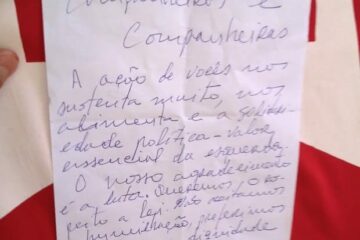 Companheiros e
Companheiras
A ação de vocês nos
sustenta muito, nos
alimenta e a solidari-
edade política - valor
essencial da esquerda.
O nosso agradecimento
é a luta. Queremos o res-
peito a lei. Não aceitamos
humilhação, preferimos
dignidade